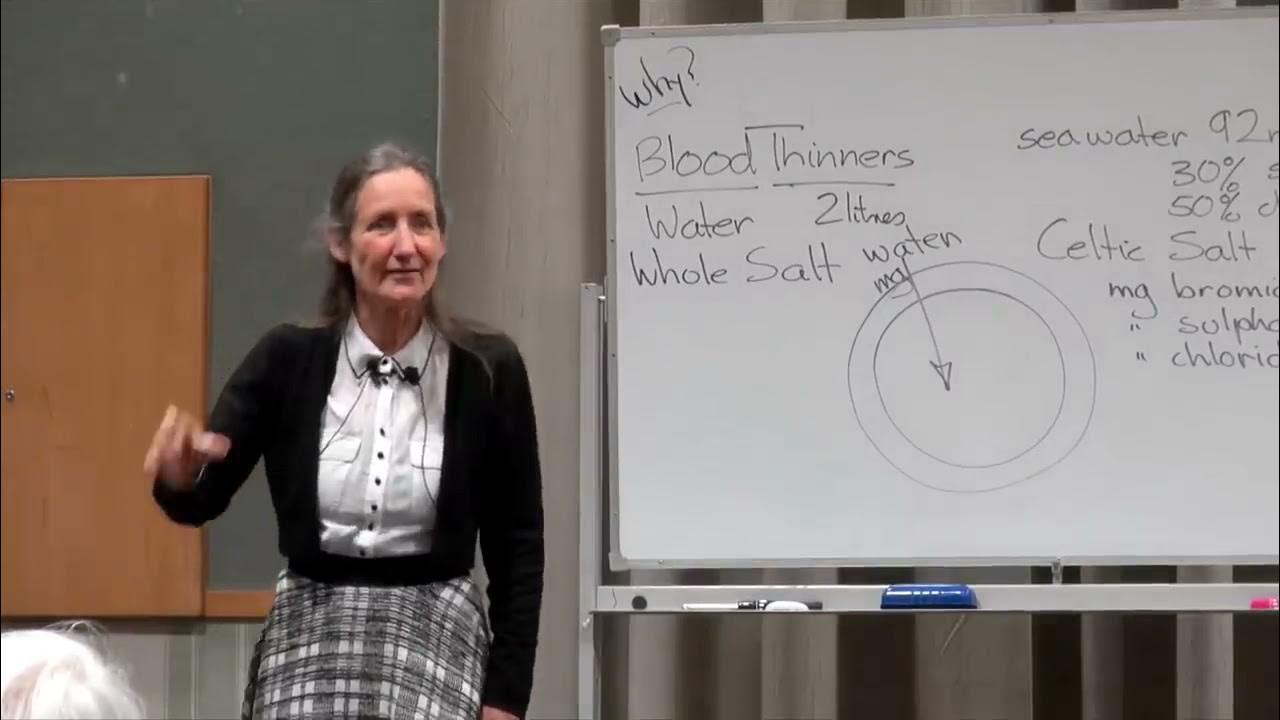 Why?
Blood Thinners
Water 2 litres
Whole Salt water
mg
sea water 92
30%
50%
Celtic Salt
mg bromi
" sulph
" chlorid